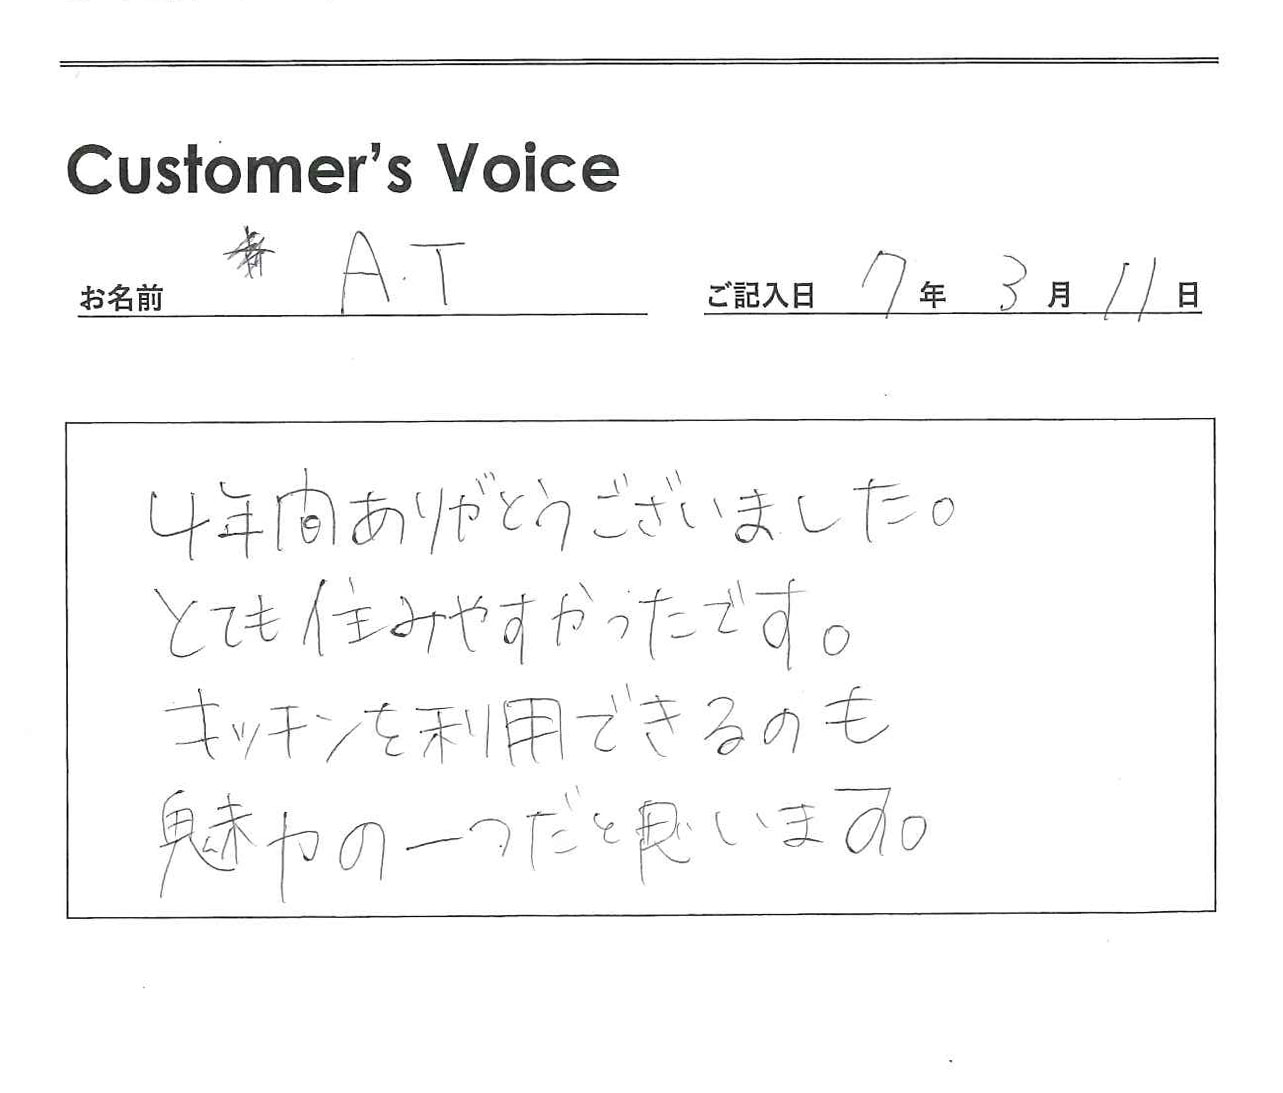 Customer's Voice
お名前 A.T ご記入日 7年3月11日
4年間ありがとうございました。
とても住みやすかったです。
キッチンを利用できるのも
魅力の一つだと思います。